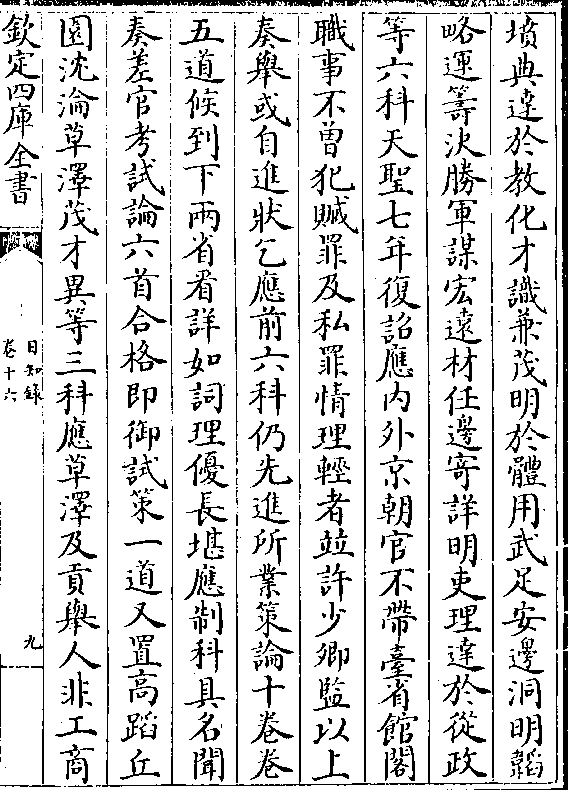 墳典達於教化才識兼茂明於體用武足安邊洞明韜
略運籌決勝軍謀宏遠材任邊寄詳明吏理達於從政
等六科天聖七年復詔應内外京朝官不帶臺省館閣
職事不曽犯贓罪及私罪情理輕者並許少卿監以上
奏舉或自進狀乞應前六科仍先進所業策論十卷卷
五道候到下兩省看詳如詞理優長堪應制科具名聞
奏差官考試論六首合格即御試策一道又置高蹈丘
園沈淪草澤茂才異等三科應草澤及貢舉人非工商
欽定四庫全書
日知錄
卷十六
九